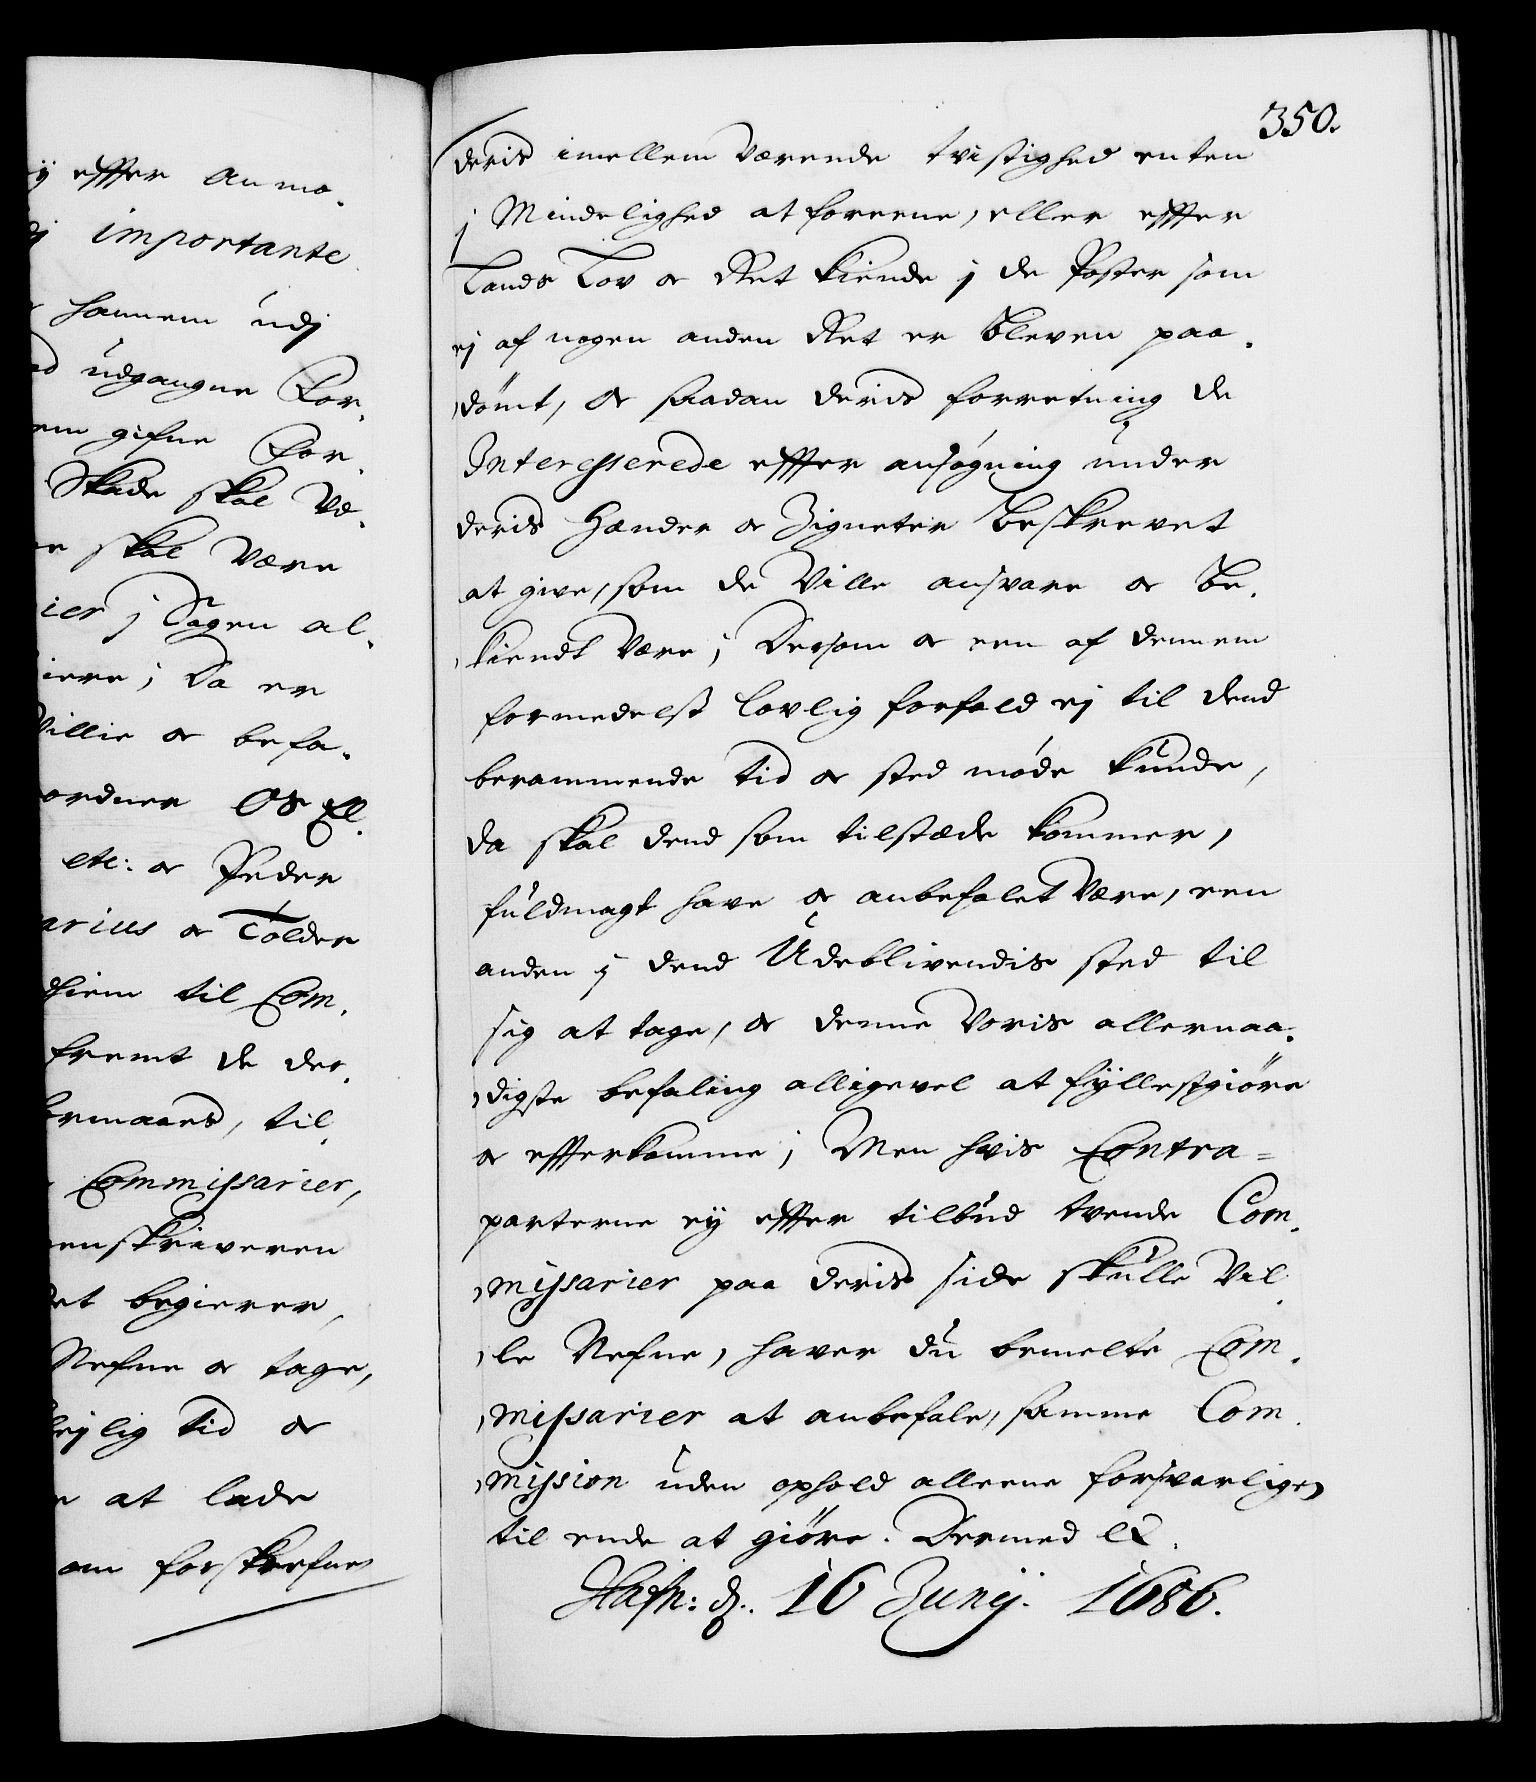 ÿ effter anmo¸
dj importante
hannem udj
ed udgangne Cor¸
em gifne Cor¸
Skade skal Væ¸
e skal Være
ier j Sagen al¸
iere; Da er
Villie og befa¸
ordner Os Ell.
etc: og Peder
arius og Tolder
hiem til Com¸
fremt de der¸
ermaard, til¸
Commissarier,
enskriveren
det begierer,
Nefne og tage,
lejlig tid og
at lade
om forskrefne
350.
deris imellem Værende tvistighed enten
j Mindelighed at foreene, eller effter
Lands Lov og Ret kiende j de Poster som
ej af nogen anden Ret er bleven paa¸
dömt, og saadan deris forretning de
Interesserede effter ansøgning under
deris Hænder og Zigneter beskrevet
at give, som de Ville ansvare og be¸
kiendt Være; Dersom og een af dennem
formedelst lovlig forfald ej til dend
berammende tid og sted møde kunde,
da skal dend som tilstæde kommer,
fuldmagt have og anbefalet Være, een
anden j dend Udeblivendis sted til
sig at tage, og denne Voris allernaa¸
digste befaling alligevel at fyllestgiöre
og effterkomme; Men hvis Contra=
parterne ey effter tilbud tvende Com¸
missarier paa deris side skulle Vil¸
le Nefne, haver du bemelte Com¸
missarier at anbefale, samme Com¸
mission uden ophold alleene forsvarligen
til ende at giöre. Dermed etc.
Hafn: d. 16 Junij. 1686.